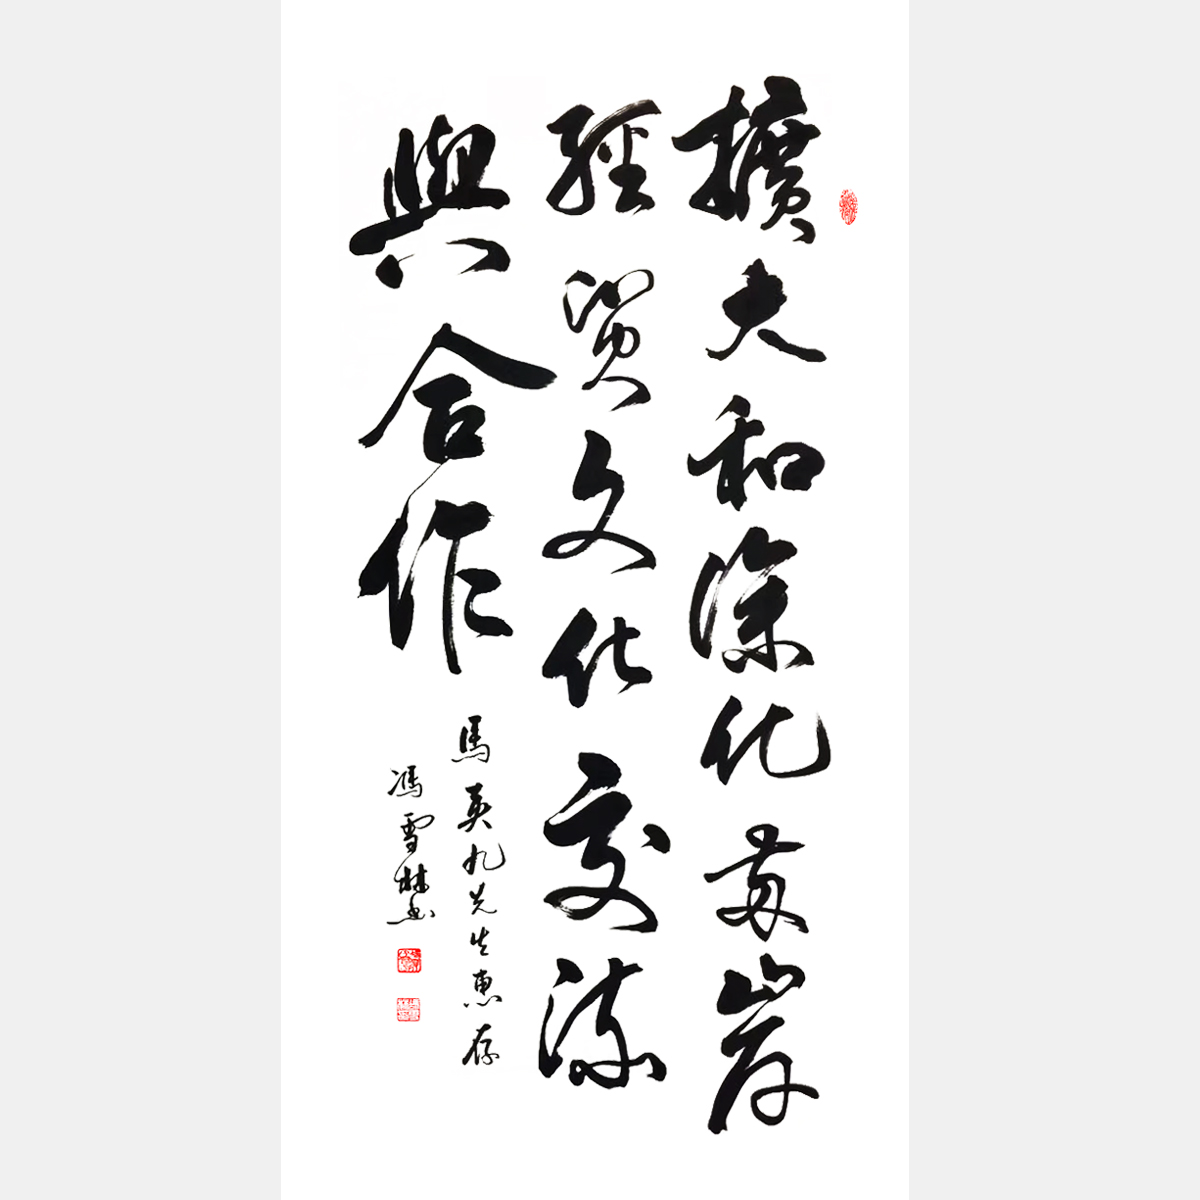 擴大和深化两岸
經贸文化交流
與合作
馬英九先生惠存
馮雪林書